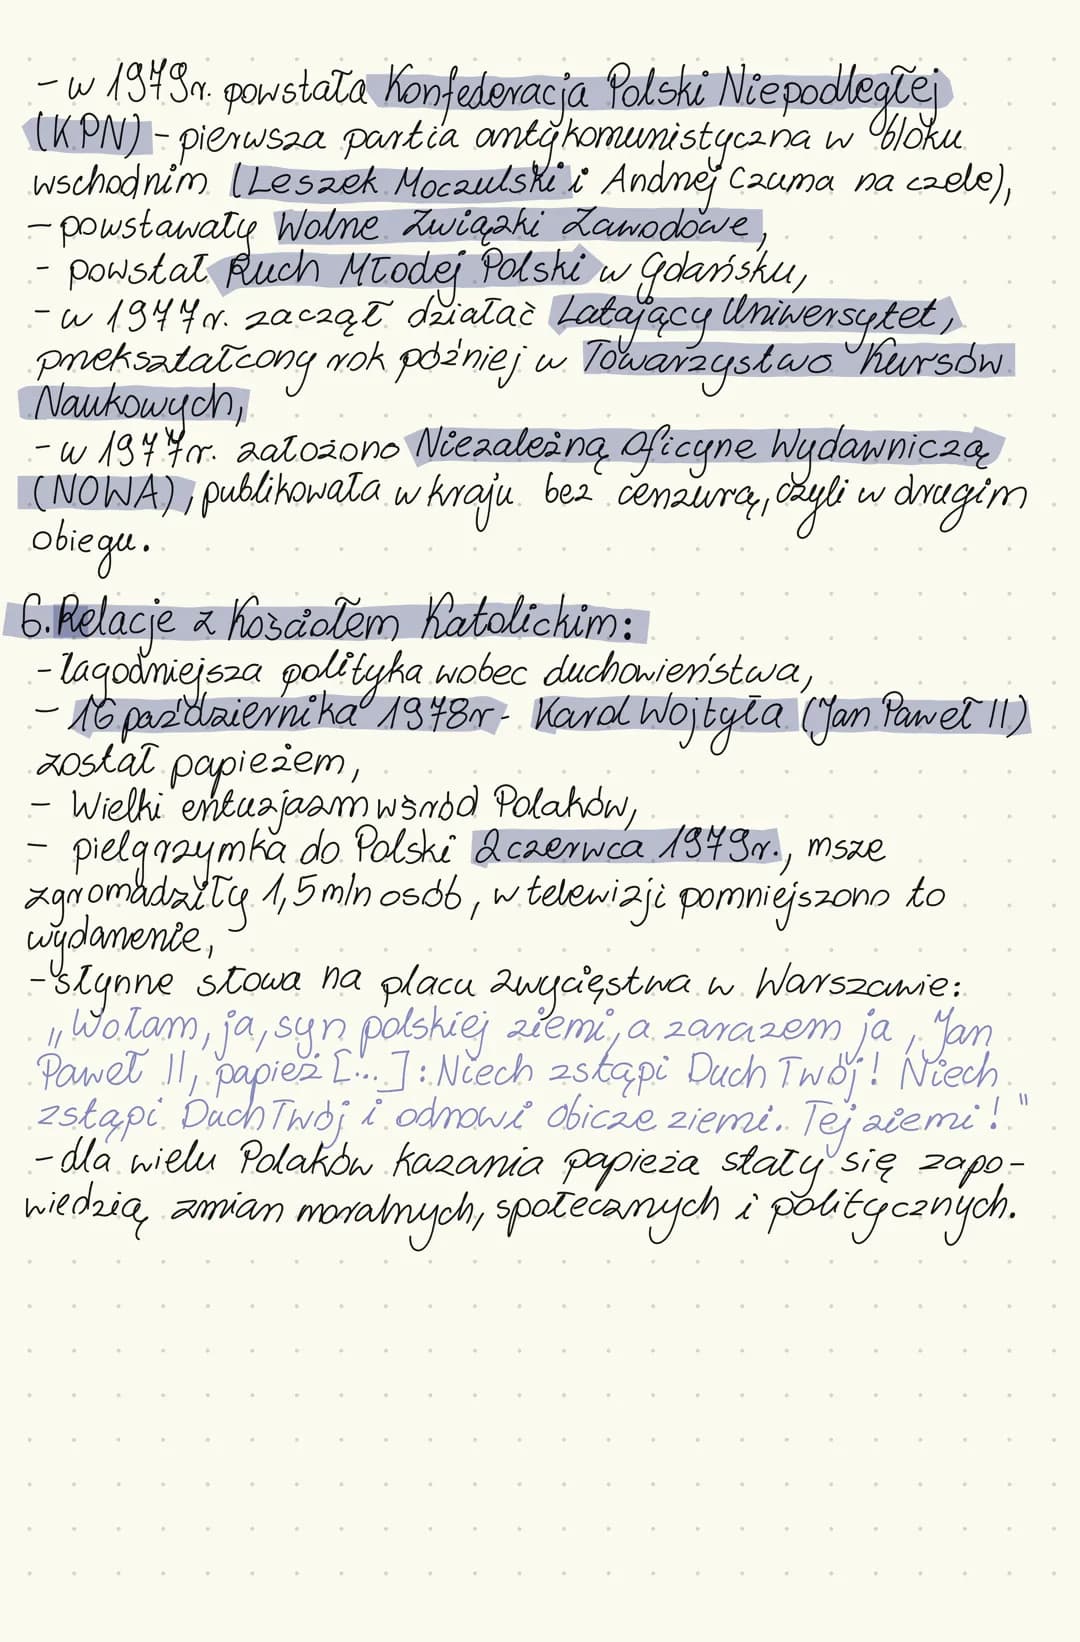 - w 1979r. powstała Konfederacja Polski Niepodległej
(KPN) - pierwsza partia antykomunistyczna w bloku
wschodnim (Leszek Moczulski i Andrzej Czuma na czele),
- powstawały Wolne Związki Zawodowe,
- powstał Ruch Młodej Polski w Gdańsku,
- w 1977r. zaczął działać Latający Uniwersytet,
przekształcony rok później w Towarzystwo Kursów
Naukowych,
- w 1977r. założono Niezależną Oficynę Wydawniczą
(NOWA), publikowała w kraju bez cenzurą, czyli w drugim
obiegu.
6. Relacje z Kościołem Katolickim:
- łagodniejsza polityka wobec duchowieństwa,
- 16 października 1978r - Karol Wojtyła (Jan Paweł II)
został papieżem,
- Wielki entuzjazm wśród Polaków,
- pielgrzymka do Polski 2 czerwca 1979r., msze
zgromadziły 1,5 mln osób, w telewizji pomniejszono to
wydarzenie,
- słynne słowa na placu zwycięstwa w Warszawie:
„Wołam, ja, syn polskiej ziemi, a zarazem ja, Jan
Paweł II, papież [...]: Niech zstąpi Duch Twój! Niech
zstąpi Duch Twój i odnowi obicze ziemi. Tej ziemi!"
- dla wielu Polaków kazania papieża stały się zapo-
wiedzią zmian moralnych, społecznych i politycznych.